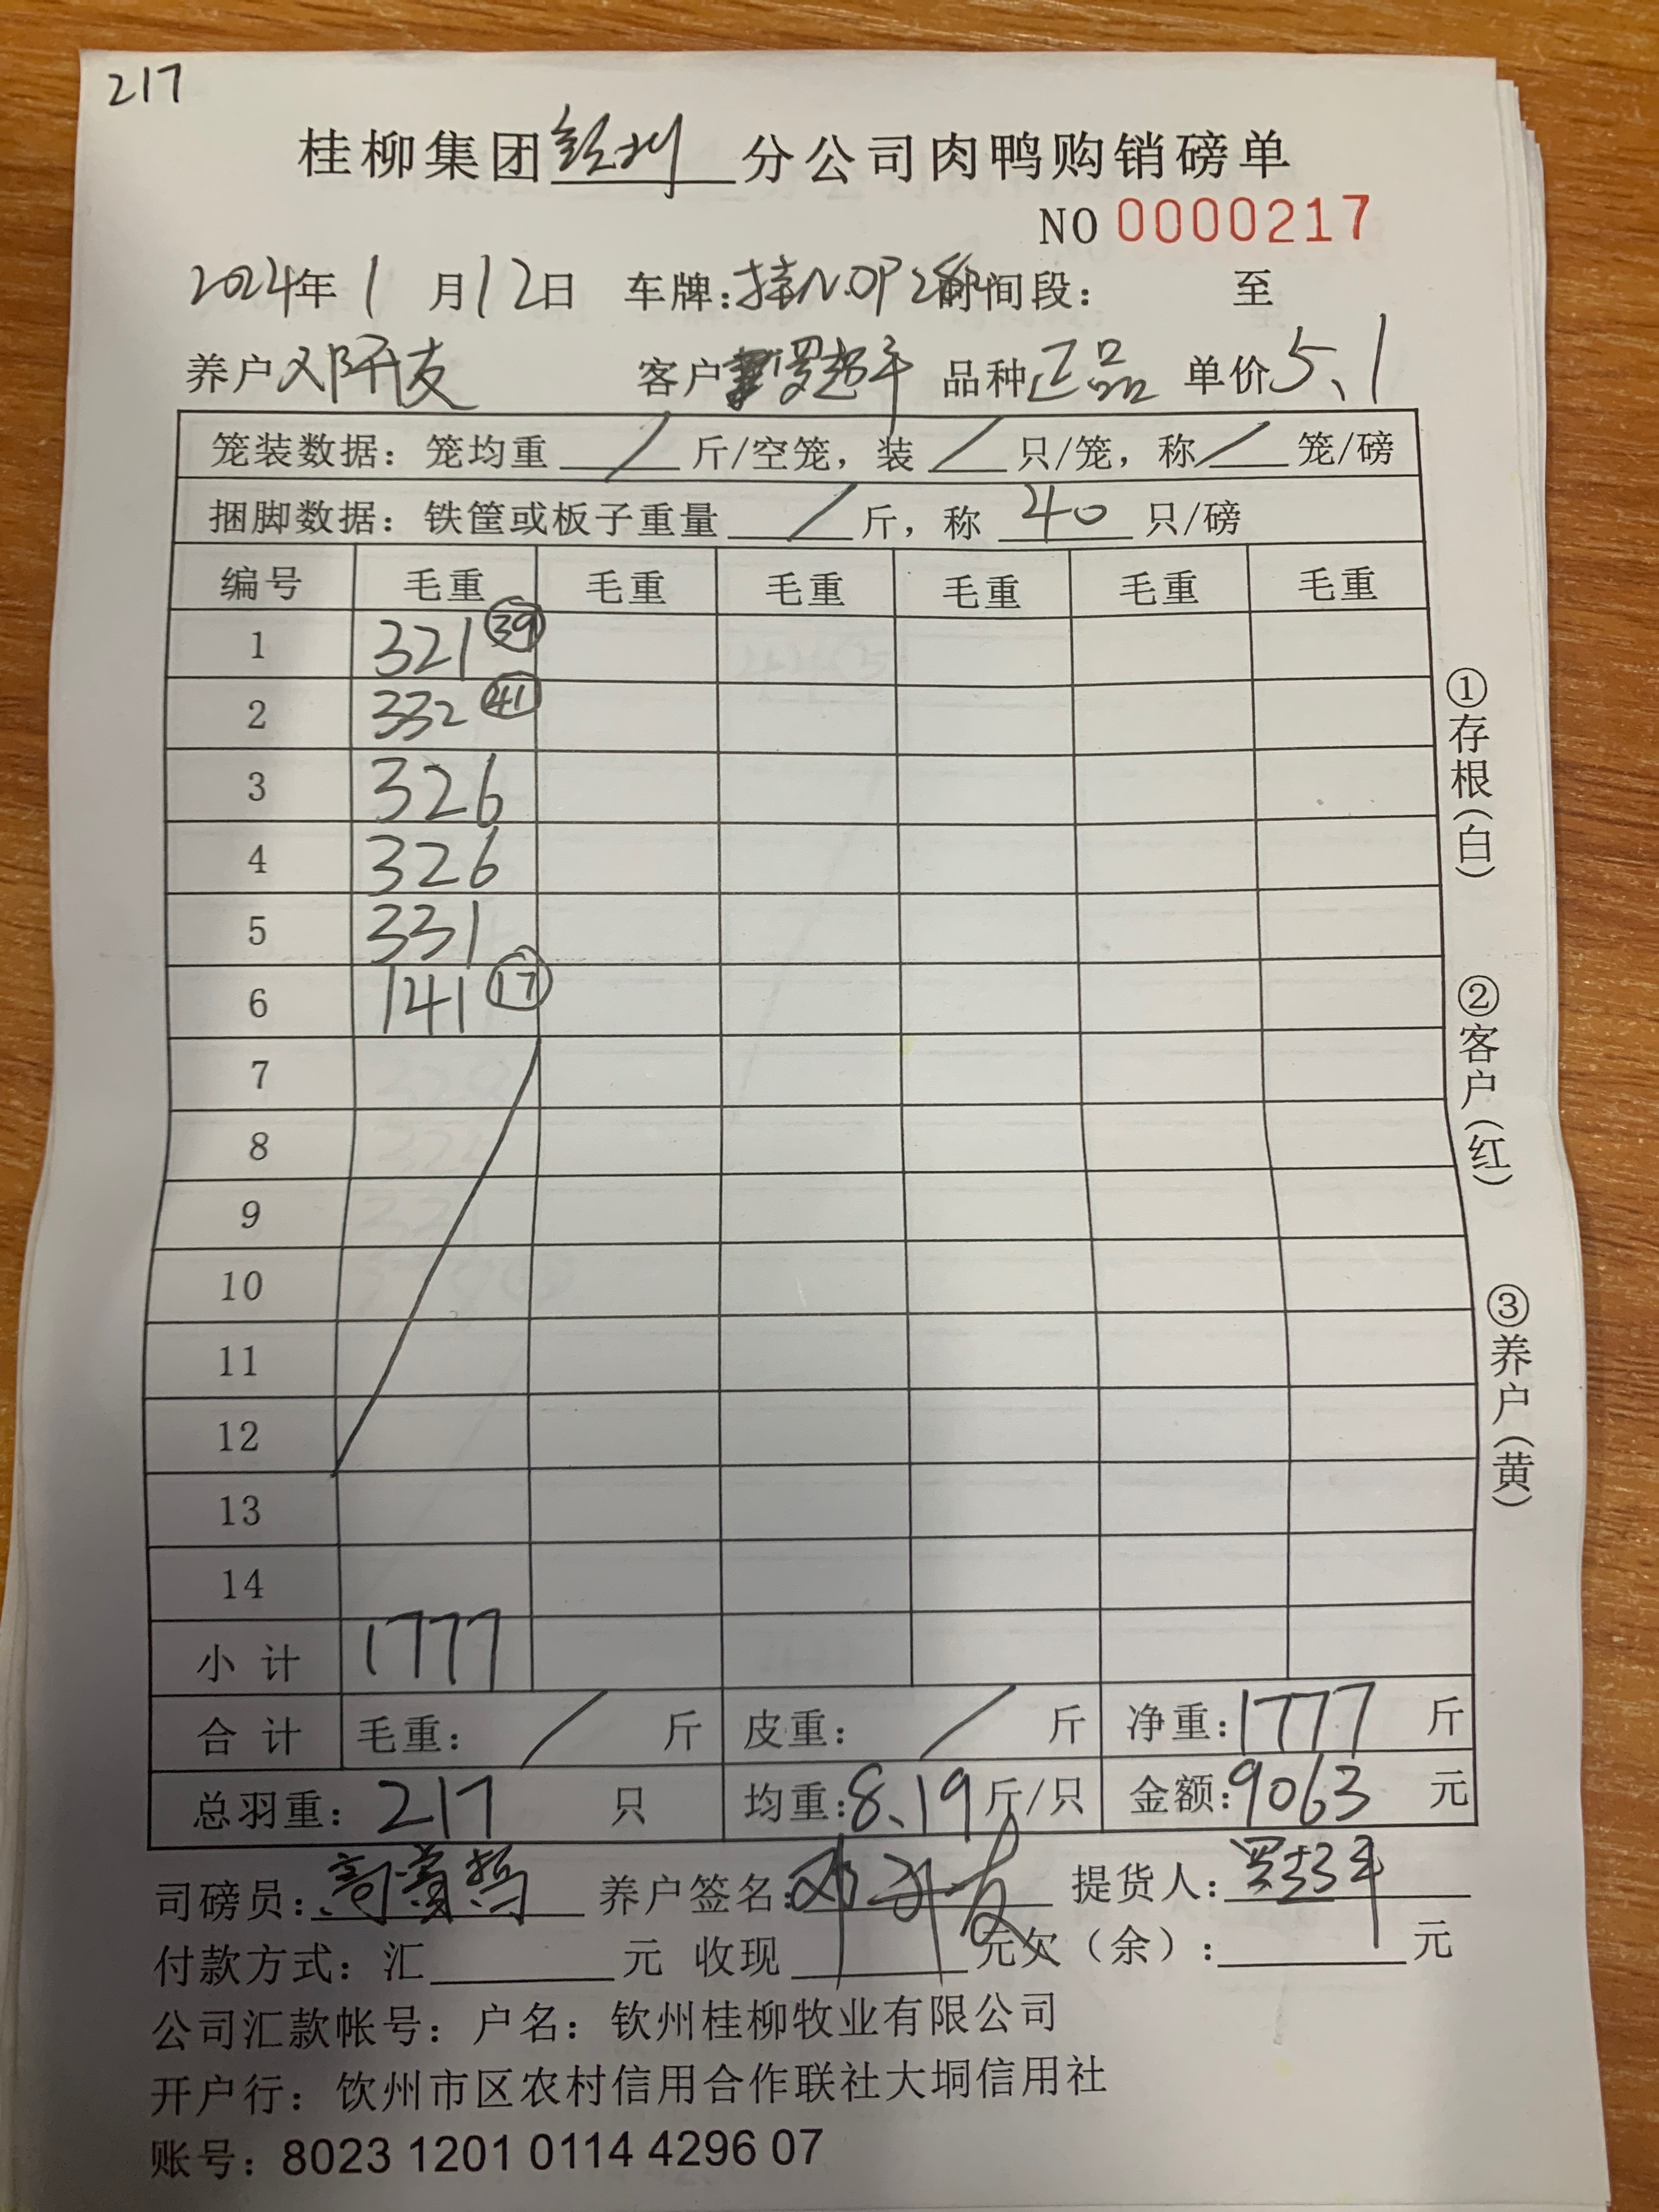 217
桂柳集团钦州分公司肉鸭购销磅单
NO 0000217
2024年1月12日 车牌:桂N.0P 时间段: 至
养户邓开友 客户罗超年 品种正品 单价5、1
笼装数据: 笼均重/斤/空笼, 装/只/笼, 称/笼/磅
捆脚数据: 铁筐或板子重量/斤, 称40只/磅
编号 毛重 毛重 毛重 毛重 毛重 毛重
1 321 ㊴
2 332 ㊶
3 326
4 326
5 331
6 141 ⑰
7
8
9
10
11
12
13
14
小计 1777
合计 毛重: / 斤 皮重: / 斤 净重:1777 斤
总羽重: 217 只 均重:8、19斤/只 金额:9063 元
司磅员: 养户签名:邓开友 提货人:罗超年
付款方式: 汇 元 收现 元欠(余): 元
公司汇款帐号: 户名: 钦州桂柳牧业有限公司
开户行: 饮州市区农村信用合作联社大垌信用社
账号: 8023 1201 0114 4296 07
①存根(白)
②客户(红)
③养户(黄)